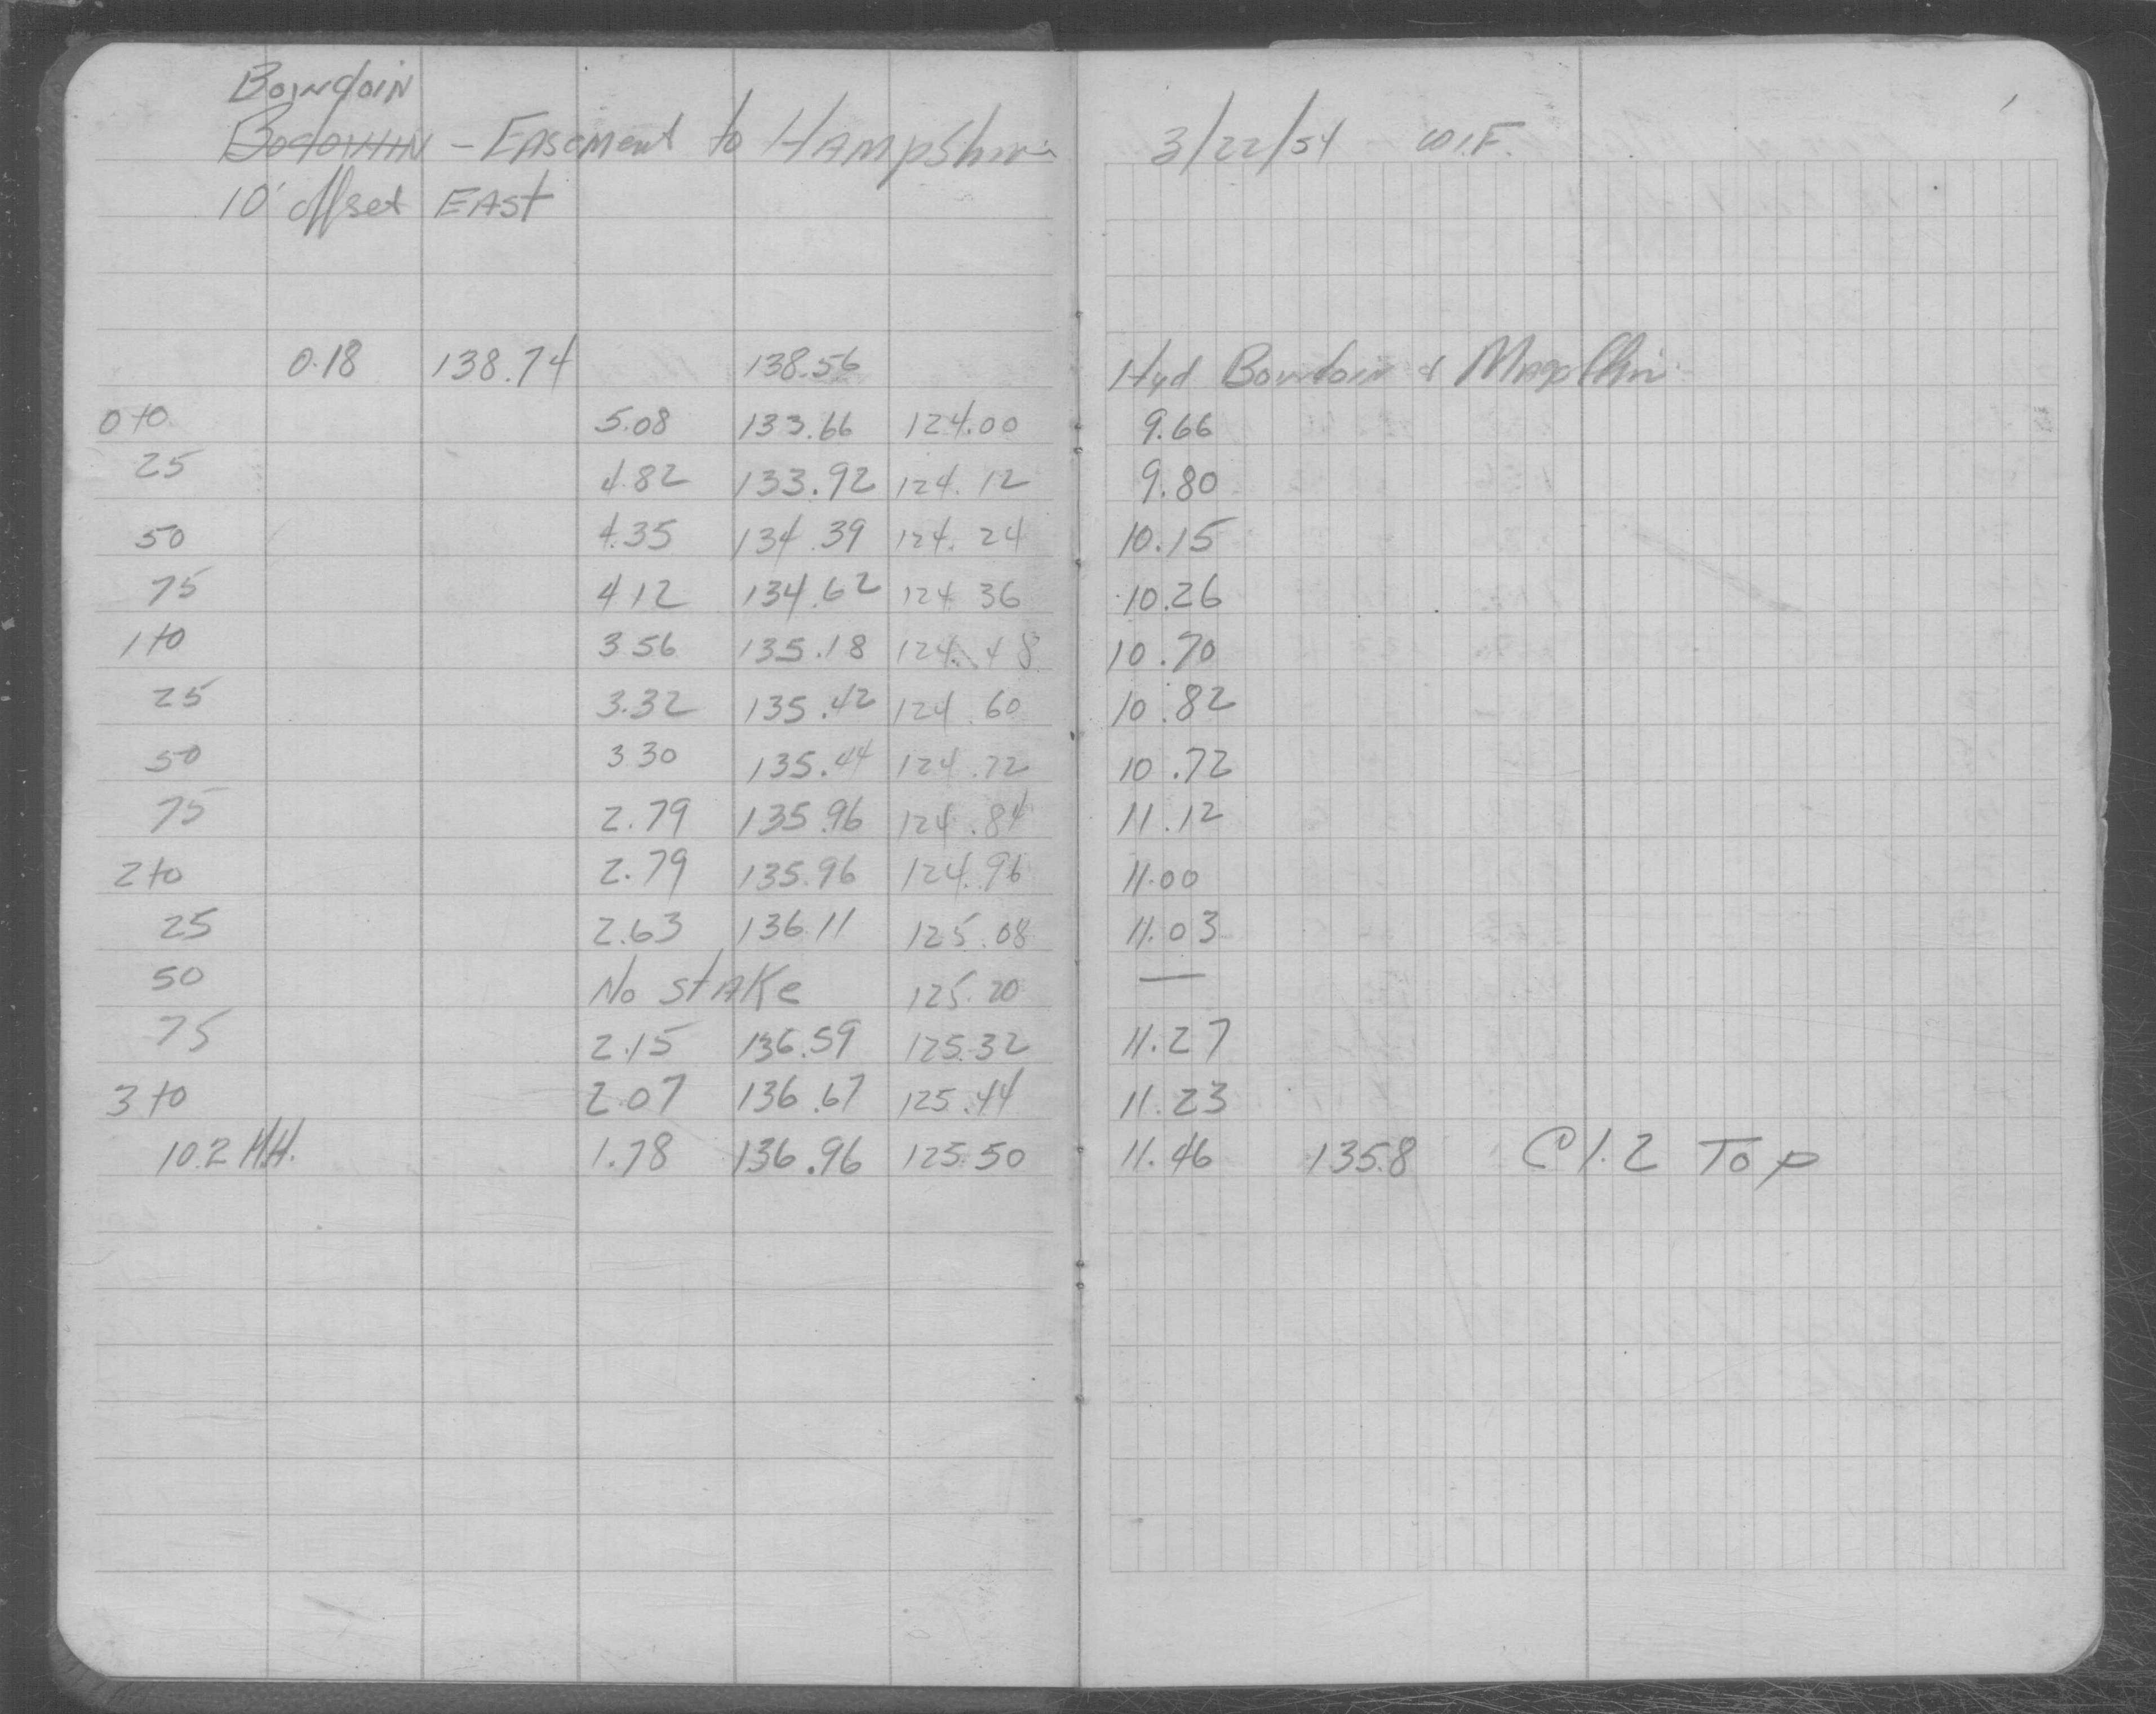 Bowdoin
Bodowin - Easement to Hampshire 3/22/54 W.F.
10' offset East
0.18 138.74 138.56 Hyd Bowdoin &
0+0 5.08 133.66 124.00 9.66
25 4.82 133.92 124.12 9.80
50 4.35 134.39 124.24 10.15
75 4 12 134.62 124 36 10.26
1+0 3 56 135.18 124.48 10.70
25 3.32 135.42 124.60 10.82
50 3 30 135.44 124.72 10.72
75 2.79 135.96 124.84 11.12
2+0 2.79 135.96 124.96 11.00
25 2.63 136.11 125.08 11.03
50 No Stake 125.20 —
75 2.15 136.59 125.32 11.27
3+0 2.07 136.67 125.44 11.23
10.2 M.H. 1.78 136.96 125.50 11.46 135.8 C 1.2 Top